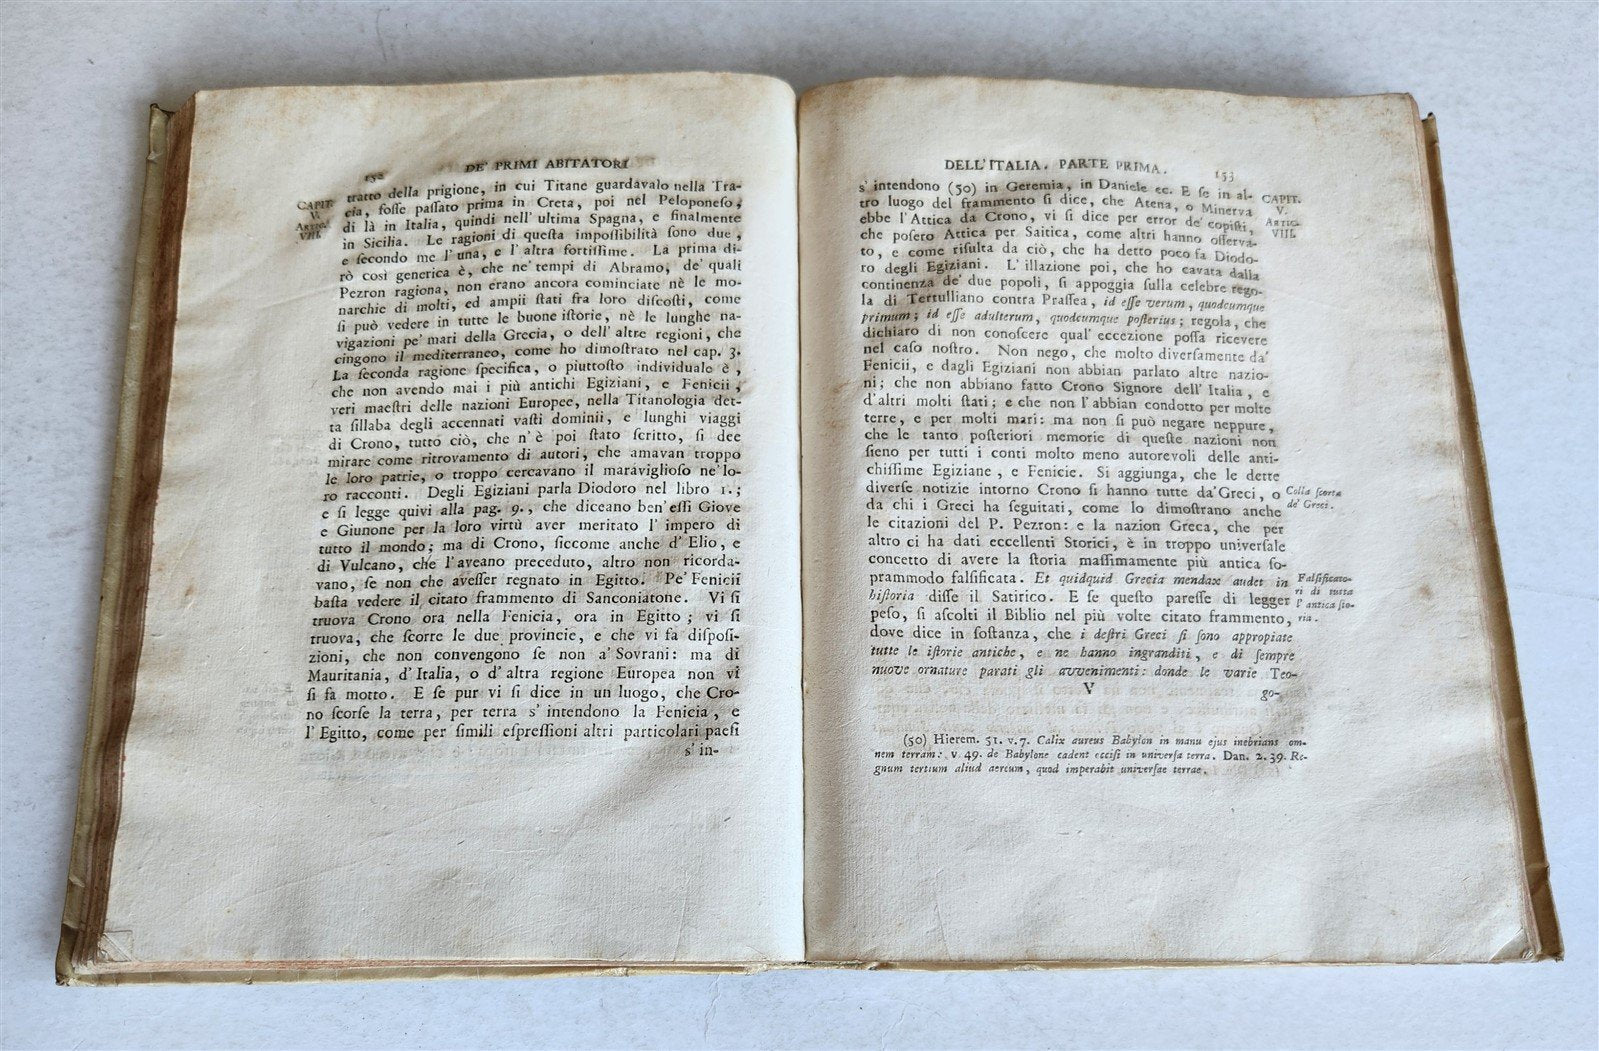 DE' PRIMI ABITATORI
152
CAPIT.
V.
ARTIC.
VIII.
tratto della prigione, in cui Titane guardavalo nella Tra-
cia, foſſe paſſato prima in Creta, poi nel Peloponeſo,
di là in Italia, quindi nell' ultima Spagna, e finalmente
in Sicilia. Le ragioni di queſta impoſſibilità ſono due,
e ſecondo me l' una, e l' altra fortiſſime. La prima di-
rò così generica è, che ne' tempi di Abramo, de' quali
Pezron ragiona, non erano ancora cominciate nè le mo-
narchie di molti, ed ampii ſtati fra loro diſcoſti, come
ſi può vedere in tutte le buone iſtorie, nè le lunghe na-
vigazioni pe' mari della Grecia, o dell' altre regioni, che
cingono il mediterraneo, come ho dimoſtrato nel cap. 3.
La ſeconda ragione ſpecifica, o piuttoſto individuale è,
che non avendo mai i più antichi Egiziani, e Fenicii,
veri maeſtri delle nazioni Europee, nella Titanologia det-
ta ſillaba degli accennati vaſti dominii, e lunghi viaggi
di Crono, tutto ciò, che n' è poi ſtato ſcritto, ſi dee
mirare come ritrovamento di autori, che amavan troppo
le loro patrie, o troppo cercavano il maraviglioſo ne' lo-
ro racconti. Degli Egiziani parla Diodoro nel libro 1.;
e ſi legge quivi alla pag. 9., che diceano ben' eſſi Giove
e Giunone per la loro virtù aver meritato l' impero di
tutto il mondo; ma di Crono, ſiccome anche d' Elio, e
di Vulcano, che l' aveano preceduto, altro non ricorda-
vano, ſe non che aveſſer regnato in Egitto. Pe' Fenicii
baſta vedere il citato frammento di Sanconiatone. Vi ſi
truova Crono ora nella Fenicia, ora in Egitto; vi ſi
truova, che ſcorre le due provincie, e che vi fa diſpoſi-
zioni, che non convengono ſe non a' Sovrani: ma di
Mauritania, d' Italia, o d' altra regione Europea non vi
ſi fa motto. E ſe pur vi ſi dice in un luogo, che Cro-
no ſcorſe la terra, per terra s' intendono la Fenicia, e
l' Egitto, come per ſimili eſpreſſioni altri particolari paeſi
s' in-
DELL' ITALIA. PARTE PRIMA.
153
CAPIT.
V.
ARTIC.
VIII.
s' intendono (50) in Geremia, in Daniele ec. E ſe in al-
tro luogo del frammento ſi dice, che Atena, o Minerva
ebbe l' Attica da Crono, vi ſi dice per error de' copiſti,
che poſero Attica per Saitica, come altri hanno oſſerva-
to, e come riſulta da ciò, che ha detto poco fa Diodo-
ro degli Egiziani. L' illazione poi, che ho cavata dalla
continenza de' due popoli, ſi appoggia ſulla celebre rego-
la di Tertulliano contra Praſſea, id eſſe verum, quodcumque
primum; id eſſe adulterum, quodcumque poſterius; regola, che
dichiaro di non conoſcere qual' eccezione poſſa ricevere
nel caſo noſtro. Non nego, che molto diverſamente da'
Fenicii, e dagli Egiziani non abbian parlato altre nazio-
ni; che non abbiano fatto Crono Signore dell' Italia, e
d' altri molti ſtati; e che non l' abbian condotto per molte
terre, e per molti mari: ma non ſi può negare neppure,
che le tanto poſteriori memorie di queſte nazioni non
ſieno per tutti i conti molto meno autorevoli delle anti-
chiſſime Egiziane, e Fenicie. Si aggiunga, che le dette
diverſe notizie intorno Crono ſi hanno tutte da' Greci, o
da chi i Greci ha ſeguitati, come lo dimoſtrano anche
le citazioni del P. Pezron: e la nazion Greca, che per
altro ci ha dati eccellenti Storici, è in troppo univerſale
concetto di avere la ſtoria maſſimamente più antica ſo-
prammodo falſificata. Et quidquid Grecia mendax audet in
hiſtoria diſſe il Satirico. E ſe queſto pareſſe di legger
peſo, ſi aſcolti il Biblio nel più volte citato frammento,
dove dice in ſoſtanza, che i deſtri Greci ſi ſono appropiate
tutte le iſtorie antiche, e ne hanno ingranditi, e di ſempre
nuove ornature parati gli avvenimenti: donde le varie Teo-
V
go-
Colla ſcorta
de' Greci.
Falſificato-
ri di tutta
l' antica ſto-
ria.
(50) Hierem. 51. v. 7. Calix aureus Babylon in manu ejus inebrians om-
nem terram: v 49. de Babylone cadent ecciſi in univerſa terra. Dan. 2. 39. Re-
gnum tertium aliud aereum, quod imperabit univerſae terrae.